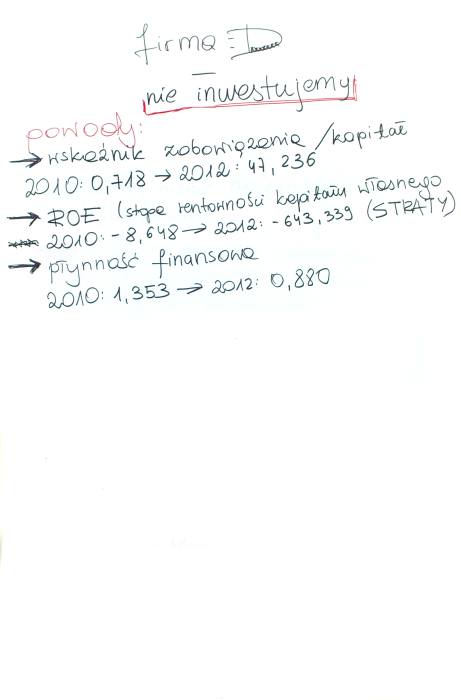 firma D
nie inwestujemy
powody:
→ wskaźnik zobowiązania / kapitał
2010: 0,718 → 2012: 47,236
→ ROE (stopa rentowności kapitału własnego
2010: -8,648 → 2012: -643,339 (STRATY)
→ płynność finansowa
2010: 1,353 → 2012: 0,880